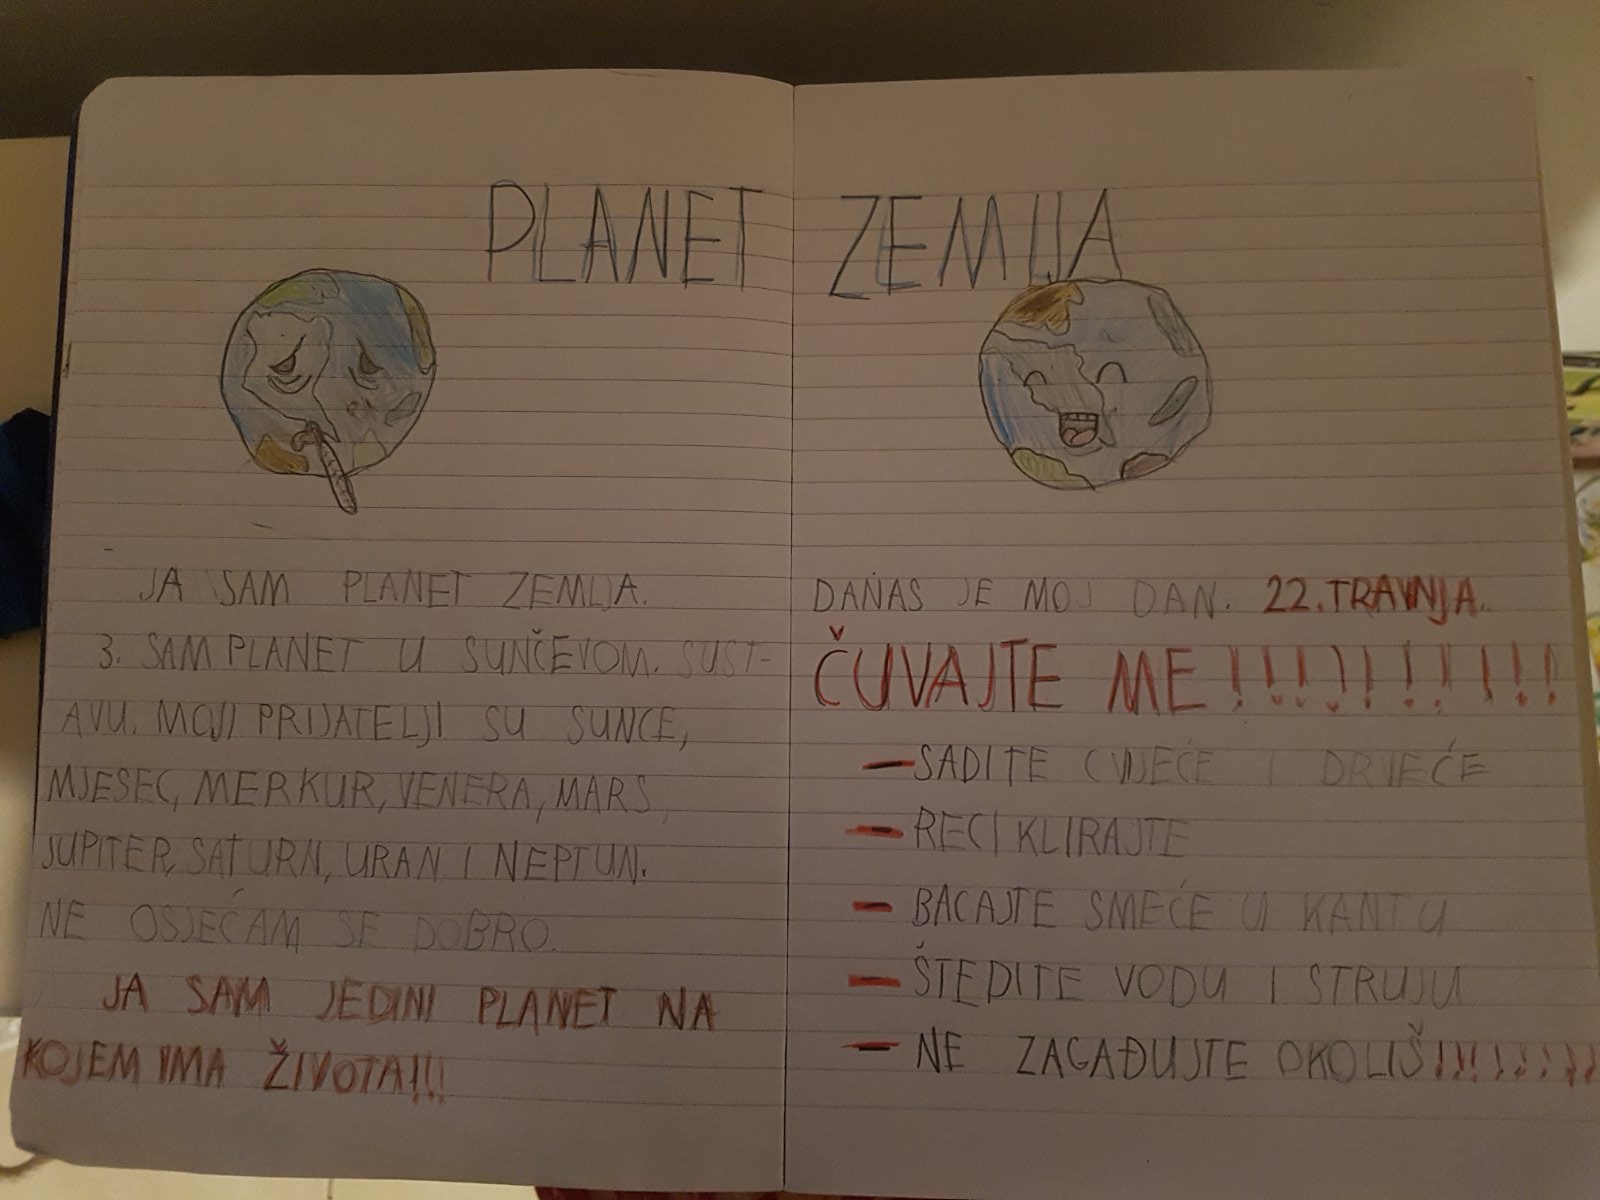 PLANET ZEMLJA
JA SAM PLANET ZEMLJA.
3. SAM PLANET U SUNČEVOM. SUST-
AVU. MOJI PRIJATELJI SU SUNCE,
MJESEC, MERKUR, VENERA, MARS,
JUPITER, SATURN, URAN I NEPTUN.
NE OSJEĆAM SE DOBRO.
JA SAM JEDINI PLANET NA
KOJEM IMA ŽIVOTA!!!
DANAS JE MOJ DAN. 22. TRAVNJA.
ČUVAJTE ME !!!!!!!!!!
- SADITE CVIJEĆE I DRVEĆE
- RECIKLIRAJTE
- BACAJTE SMEĆE U KANTU
- ŠTEDITE VODU I STRUJU
- NE ZAGAĐUJTE OKOLIŠ!!!!!!!!